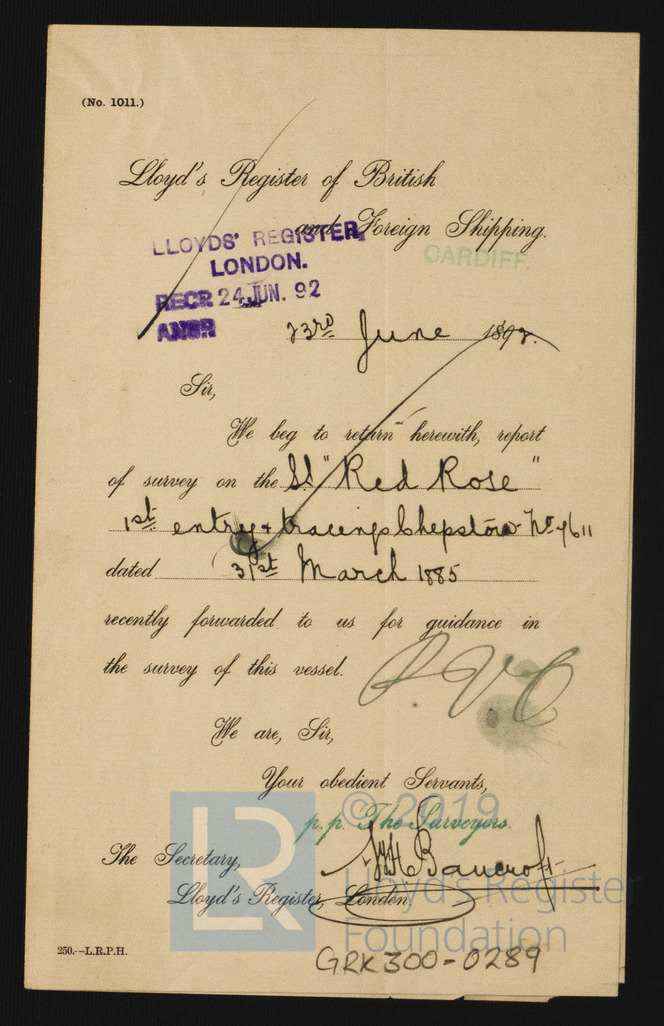 (No. 1011.)
Lloyd's Register of British
and Foreign Shipping.
LLOYDS' REGISTER,
LONDON.
RECD 24 JUN. 92
ANSR
CARDIFF.
23rd June 1892.
Sir,
We beg to return herewith, report
of survey on the SS "Red Rose"
1st entry & tracings Chepstow No 7611
dated 31st March 1885
recently forwarded to us for guidance in
the survey of this vessel.
We are, Sir,
Your obedient Servants,
p.p. The Surveyors.
Bancroft
The Secretary,
Lloyd's Register, London,
250.--L.R.P.H.
GRK300-0289
LR
© 2019
Lloyd's Register
Foundation